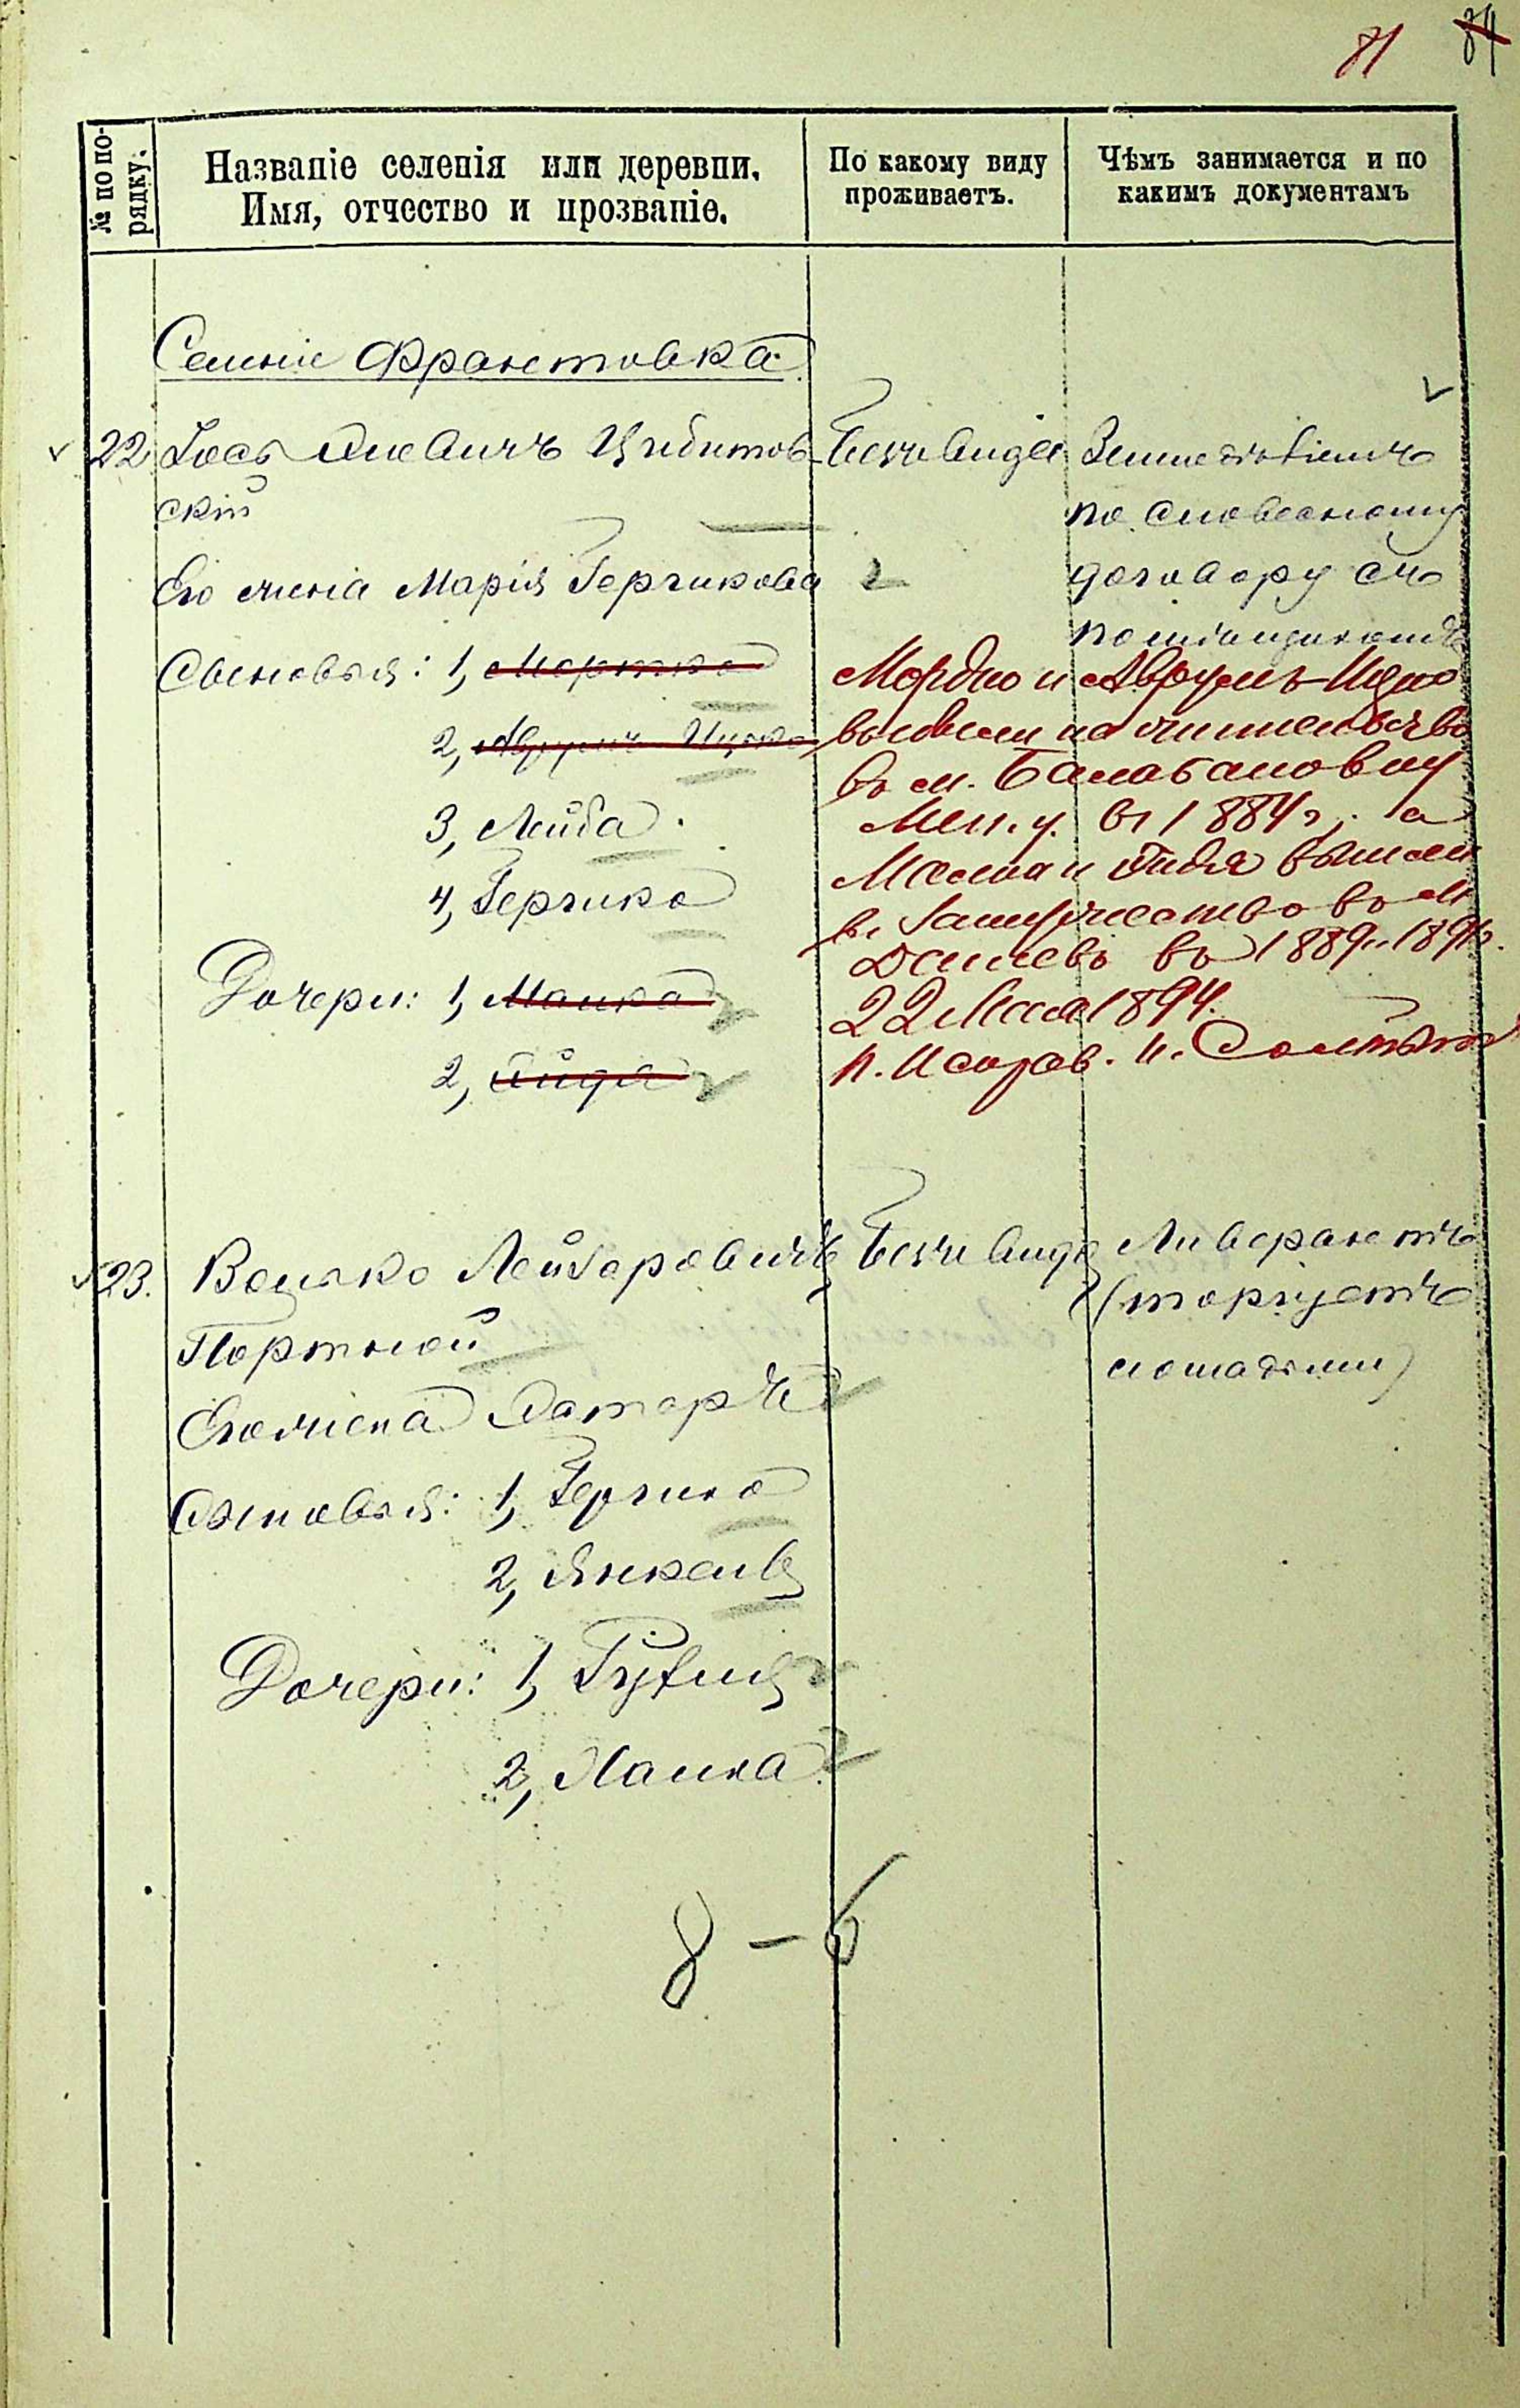 81 84
№ по по-
рядку.
Названіе селенія или деревни.
Имя, отчество и прозваніе.
По какому виду
проживаетъ.
Чѣмъ занимается и по
какимъ документамъ
Селеніе Франтовка
22 Іось Цибитов- Безъ вида Земледѣліемъ
скій
по словесному
Его жена Марія Гершкова
договору съ
помѣщикомъ
Сыновья: 1, Мортко
2, Аврумъ Ицько
3, Лейба
4, Гершко
Дочери: 1, Малка
2,
Мордко и Аврумъ-Ицко
выбыли на жительство
въ м. Балабановку
Лип. у. въ 1884 г., а
Малка и вышли
въ замужество въ м.
Дашевъ въ 1889 и 1891 г.
22 Мая 1894.
п. Исправ. И.
23. Волько Лейзаровичъ Безъ вида Ливерантъ
Портной
(торгуетъ
лошадьми)
Его жена
Сыновья: 1, Гершко
2, Янкель
Дочери: 1, Рухля
2, Ханка
8 – 6